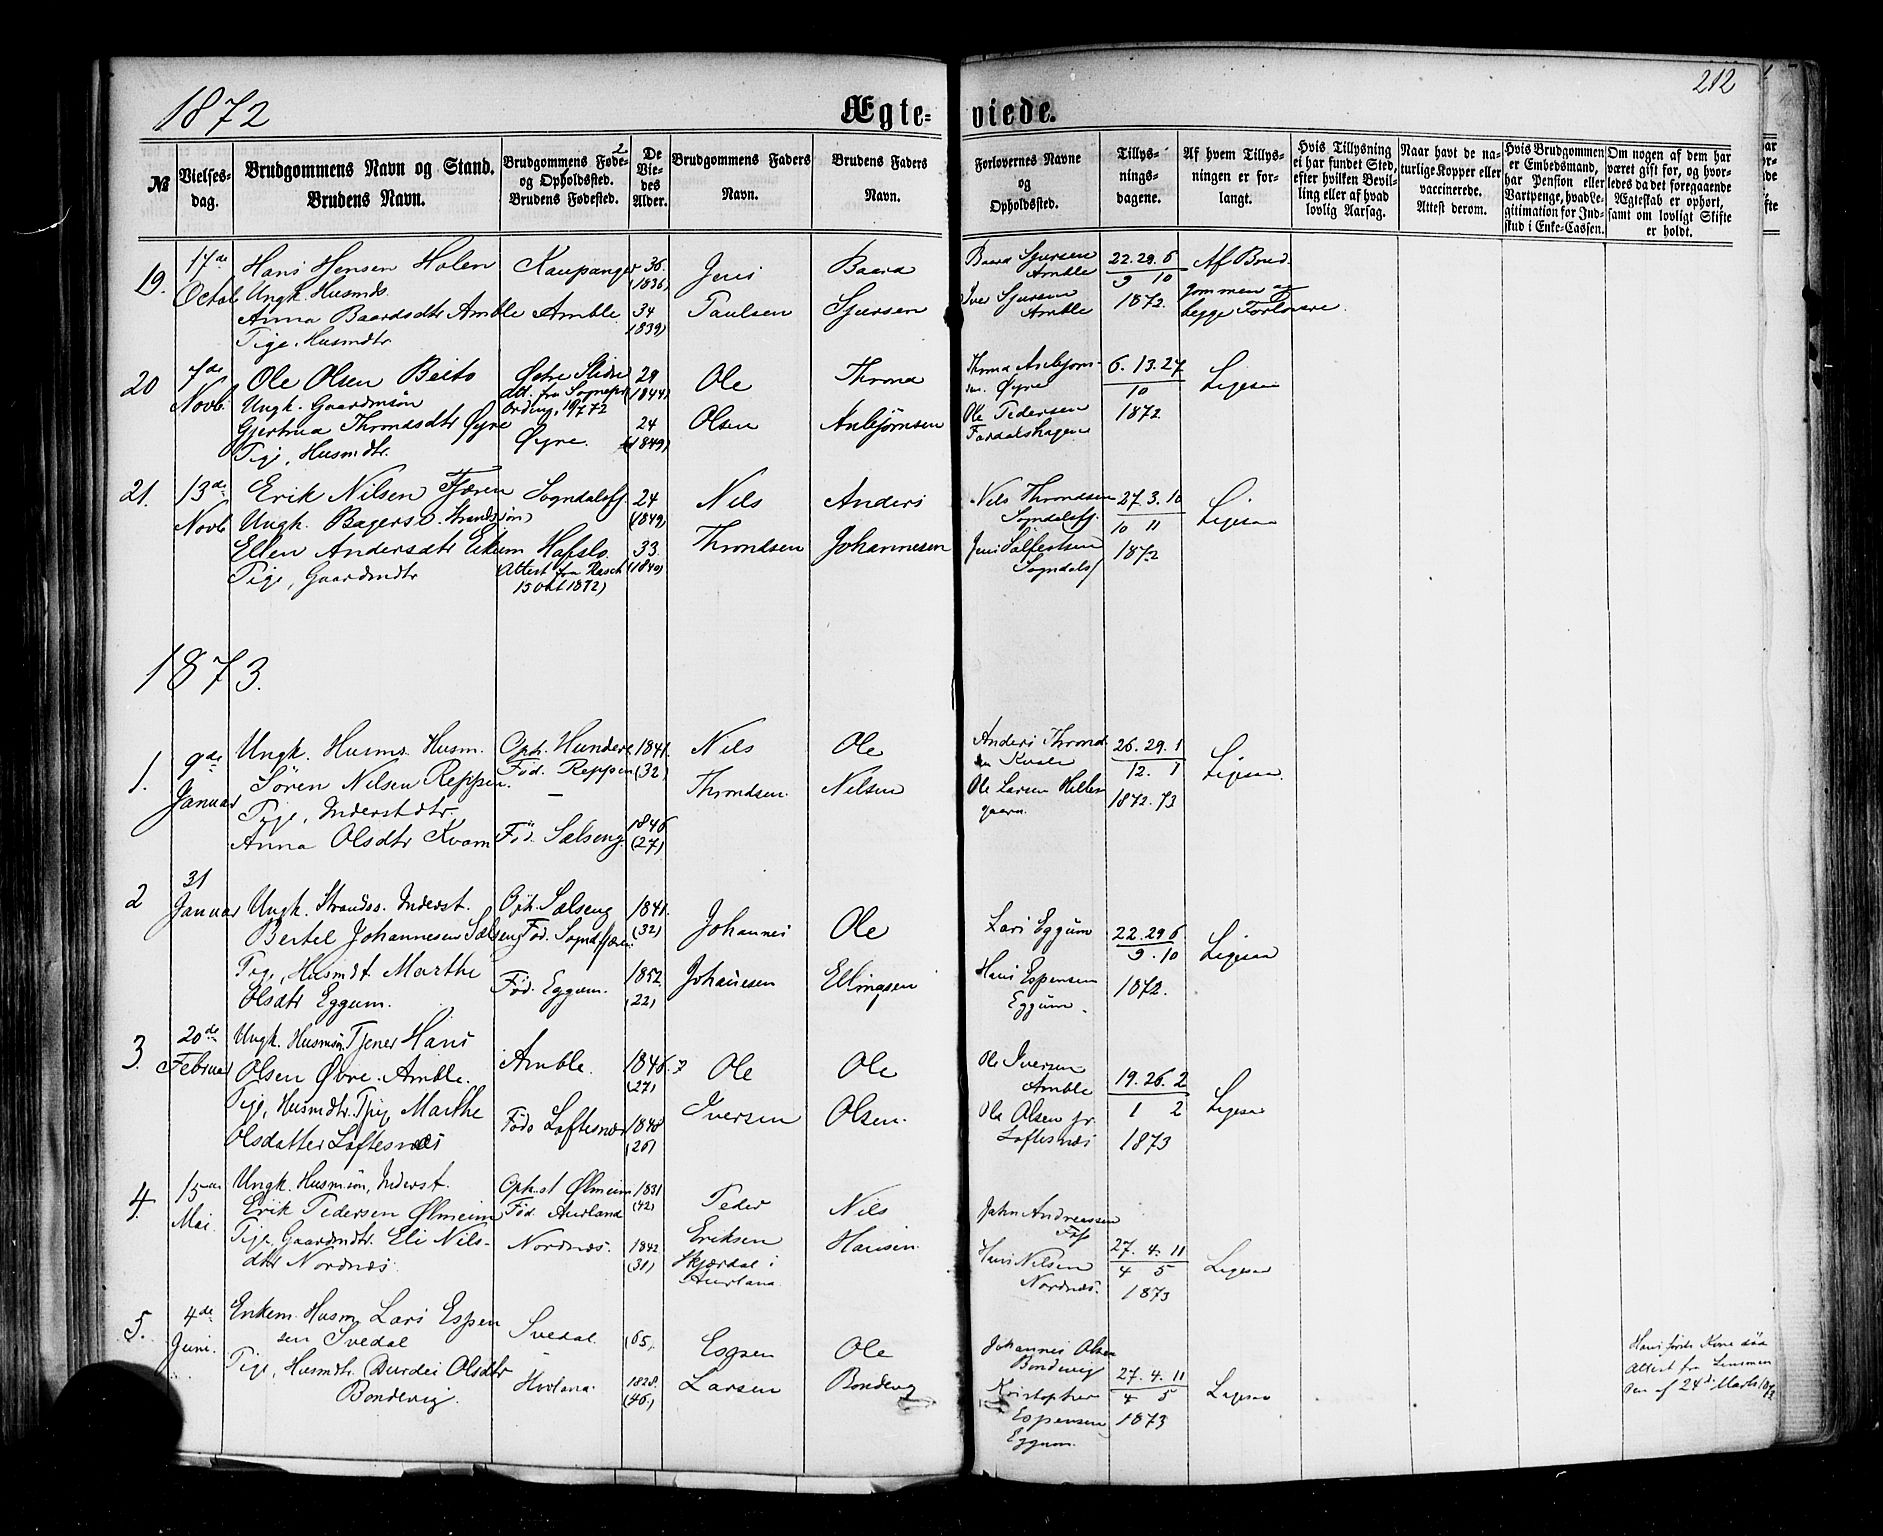 1872
Ægte-
viede.
212
№
Vielses-
dag.
Brudgommens Navn og Stand.
Brudens Navn.
Brudgommens Føde-
og Opholdssted.
Brudens Fødested.
De
Vie-
des
Alder.
Brudgommens Faders
Navn.
Brudens Faders
Navn.
Forlovernes Navne
og
Opholdssted.
Tillys-
nings-
dagene.
Af hvem Tillys-
ningen er for-
langt.
Hvis Tillysning
ei har fundet Sted,
efter hvilken Bevil-
ling eller af hvad
lovlig Aarsag.
Naar havt de na-
turlige Kopper eller
vaccinerede.
Attest derom.
Hvis Brudgommen
er Embedsmand,
har Pension eller
Vartpenge, hvad Le-
gitimation for Ind-
skud i Enke-Cassen.
Om nogen af dem har
været gift før, og hvor-
ledes da det foregaaende
Ægteskab er ophørt,
samt om lovligt Skifte
er holdt.
19.
17de
Octob
Hans Hensen Holen
Ungk. Husmds.
Anna Baardsdtr Amble
Pige. Husmdtr
Kaupanger
Amble
36.
(1836)
34
1839)
Jens
Paulsen
Baard
Sjursen
Baard Sjursen
Amble
Iver Sjursen
Amble
22.29.6
9 10
1872.
Af Brud-
gommen og
begge Forlovere.
20
7de
Novb.
Ole Olsen Beito
Ungk. Gaardmsøn
Gjertrud Throndsdtr Øyre
Pige, Husmdtr.
Østre Slidre
Att. fra Sognepr.
Øyre.
29
(1844)
24
(1849)
Ole
Olsen
Thrond
Asbjørnsen
Thrond Asbjørn-
sen. Øyre
Ole Pedersen
Fardalshagen
6. 13. 27
10
1872
Ligesaa
21.
13de
Novb
Erik Nilsen Fjæren
Ungk. Bager S. Strands(søn)
Ellen Andersdtr Eikum
Pige, Gaardmdtr
Sogndalsfj.
Hafslo.
Attest fra Rasch
15 Okt 1872)
24
(1849)
33.
(1840)
Nils
Throndsen
Anders
Johannesen
Nils Throndsen
Sogndalsfj.
Jens Salfestsen
Sogndalsf
27. 3. 10
10 11
1872
Ligesaa
1873.
1.
9de
Januar
Ungk. Husms. Husm.
Søren Nilsen Reppen.
Pige, Inderstdtr.
Anna Olsdtr Kvam
Oph. Hundere
Fød. Reppen
Fød. Sælseng
1841.
(32)
1846
(27)
Nils
Throndsen.
Ole
Nilsen
Anders Thrond-
sen Kvale
Ole Larsen Hellen
gaarn.
26. 29. 1
12. 1
1872. 73
Ligesaa.
2
31
Januar
Ungk. Strands. Inderst.
Bertel Johannesen Sælseng
Pige, Husmdt. Marthe
Olsdtr Eggum.
Oph. Sælseng
Fød. Sogndfjæren
Fød. Eggum.
1841.
(32)
1852.
(22)
Johannes
Johanesen
Ole
Ellingsen
Lars Eggum
Hans Espensen
Eggum.
22. 29. 6
9. 10
1872.
Ligesaa
3.
20de
Februar
Ungk. Husmsøn Tjener Hans
Olsen Øvre. Amble.
Pige, Husmdtr. Marthe
Olsdatter Loftesnæs
Amble.
Fødo Loftesnæs
1846.
(27)
1848
(26)
Ole
Iversen
Ole
Olsen.
Ole Iversen
Amble
Ole Olsen jr.
Loftesnæs
19. 26. 2
1 2
1873
Ligesaa
4.
15de
Mai.
Ungk. Husmsøn, Inderst.
Erik Pedersen Ølmeim
Pige, Gaardmdtr. Eli Nils-
dtr Nordnæs.
Oph.st Ølmeim
Fød. Aurland
Nordnæs.
1831
(42)
1842
(31)
Peder
Eriksen
Skjærdal i
Aurland.
Nils
Hansen.
John Andreassen
Foss
Hans Nilsen
Nordnæs.
27. 4. 11
4 5
1873
Ligesaa
5.
4de
Juni.
Enkem. Husm. Lars Espen
sen Svedal
Pige, Husmdtr. Durdei Olsdtr
Bondevig.
Svedal.
(65)
1828.
(46)
Espen
Larsen
Ole
Bondevig
Johannes Olsen
Bondevig
Kristopher
Espensen
Eggum.
27. 4. 11
4 5
1873
Ligesaa
Hans første Kone død
Attest fra Lensmen
den af 24de Marts 1873